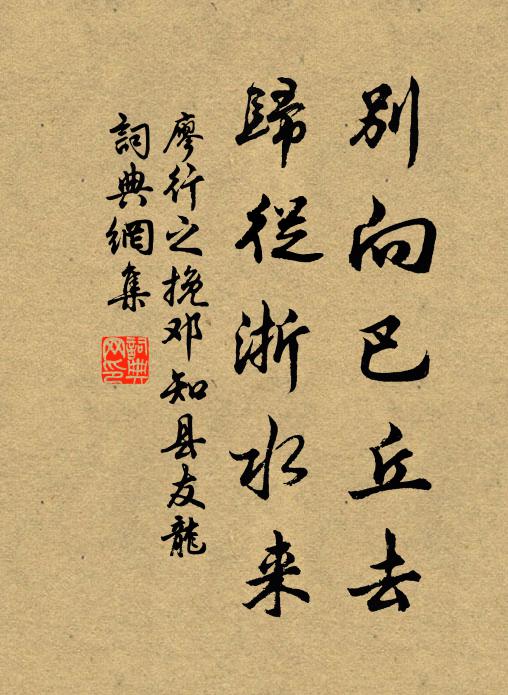 别向巴丘去
歸從浙水来
廖行之挽邓知县友龍
詞典網集
詞典网印